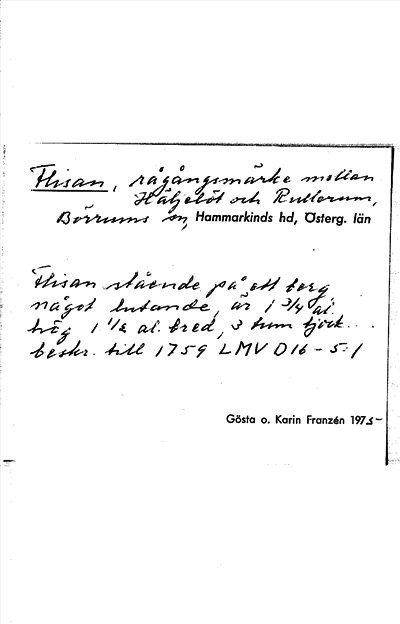 Flisan, rågångsmärke mellan
Häljelöt och Rullerum,
Börrums sn, Hammarkinds hd, Österg. län
Flisan stående på ett berg
något lutande, är 1 3/4 al.
hög 1 1/2 al. bred, 3 tum tjock.
beskr. till 1759 LMV D16-5:1
Gösta o. Karin Franzén 1975